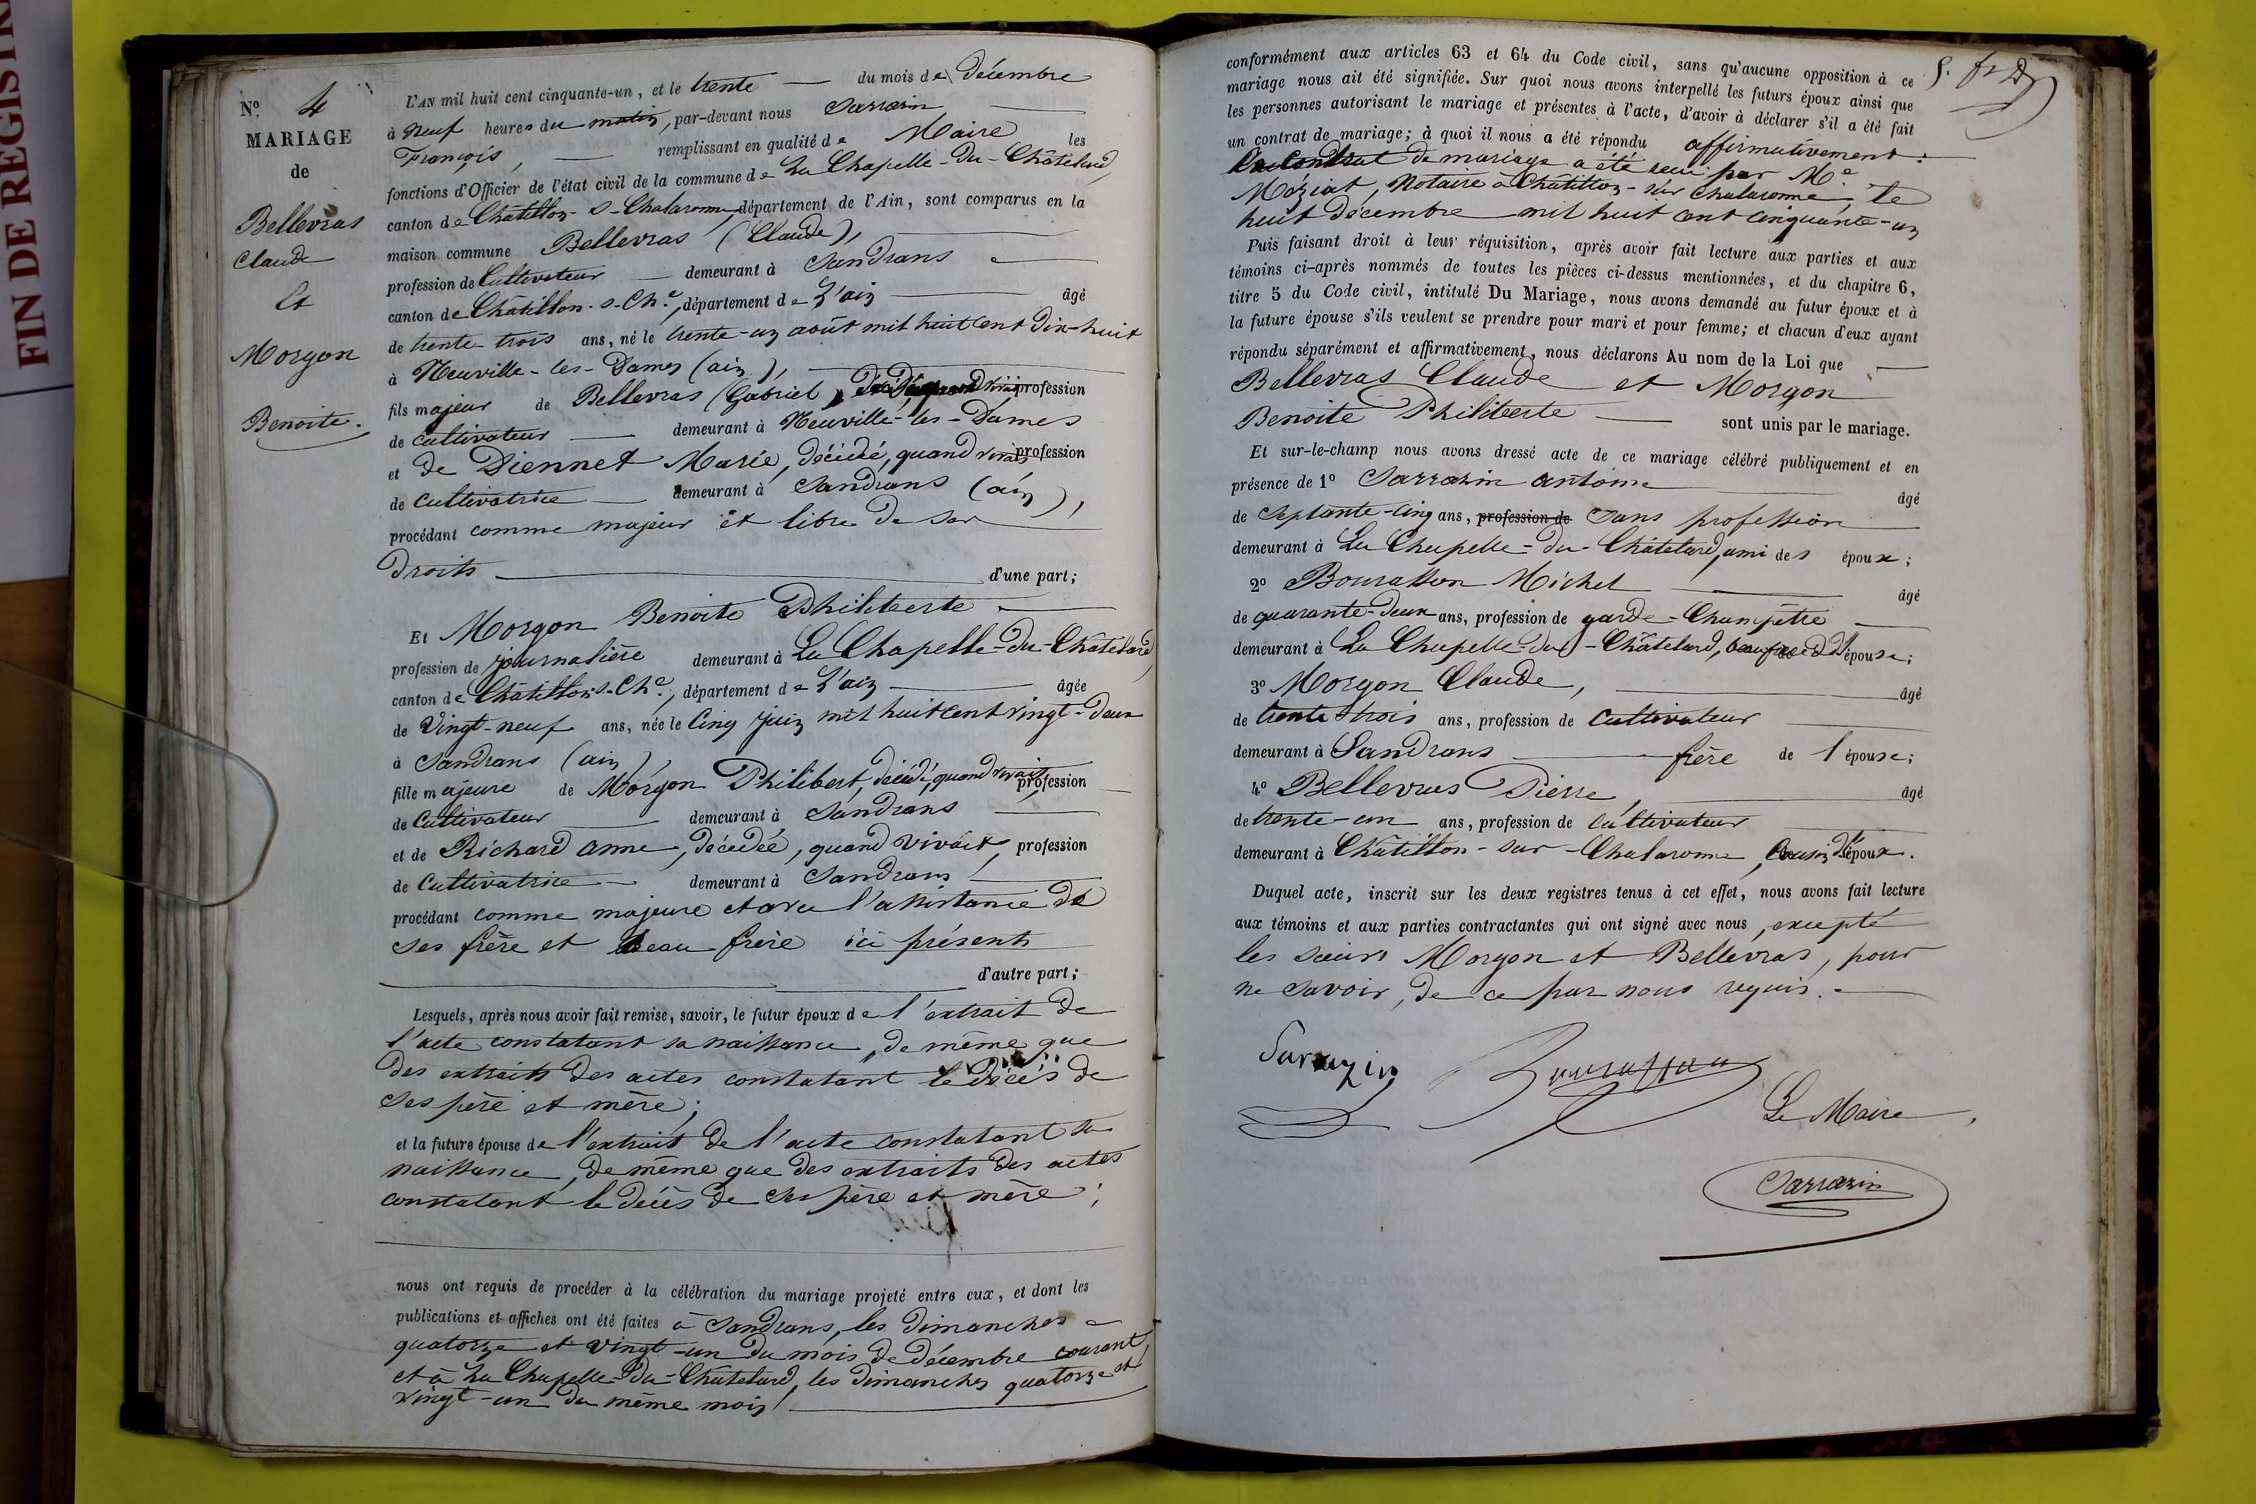 FIN DE REGISTRE
N.º 4
MARIAGE
de
Bellevras
Claude
Et
Morgon
Benoite.
L'AN mil huit cent cinquante-un, et le trente du mois de Décembre
à neuf heures du matin, par-devant nous Sarrazin
François, remplissant en qualité de Maire les
fonctions d'Officier de l'état civil de la commune de La Chapelle-du-Châtelard,
canton de Châtillon-s-Chalaronne, département de l'Ain, sont comparus en la
maison commune Bellevras (Claude),
profession de Cultivateur demeurant à Sandrans
canton de Châtillon-s-Ch.e, département de L'ain âgé
de trente-trois ans, né le trente-un août mil huit cent dix-huit
à Neuville-les-Dames (ain),
fils majeur de Bellevras (Gabriel, profession
de cultivateur demeurant à Neuville-les-Dames
et de Diennet Marie, décédé, quand vivait profession
de cultivatrice demeurant à Sandrans (ain),
procédant comme majeur et libre de ses
droits d'une part;
Et Morgon Benoite Philiberte
profession de journalière demeurant à La Chapelle-du-Châtelard,
canton de Châtillon-s-Ch.e, département de L'ain âgée
de Vingt-neuf ans, née le Cinq juin mil huit cent vingt-deux
à Sandrans (ain)
fille majeure de Morgon Philibert, décédé, quand vivait, profession
de Cultivateur demeurant à Sandrans
et de Richard Anne, décédée, quand vivait, profession
de Cultivatrice demeurant à Sandrans
procédant comme majeure et avec l'assistance de
ses frère et beau frère ici présents
d'autre part;
Lesquels, après nous avoir fait remise, savoir, le futur époux de l'extrait de
l'acte constatant sa naissance, de même que
des extraits des actes constatant le décès de
ses père et mère;
et la future épouse de l'extrait de l'acte constatant sa
naissance, de même que des extraits des actes
constatant le décès de ses père et mère;
nous ont requis de procéder à la célébration du mariage projeté entre eux, et dont les
publications et affiches ont été faites à Sandrans, les dimanches
quatorze et vingt-un du mois de décembre courant,
et à La Chapelle-du-Châtelard, les dimanches quatorze et
vingt-un du même mois
conformément aux articles 63 et 64 du Code civil, sans qu'aucune opposition à ce
mariage nous ait été signifiée. Sur quoi nous avons interpellé les futurs époux ainsi que
les personnes autorisant le mariage et présentes à l'acte, d'avoir à déclarer s'il a été fait
un contrat de mariage; à quoi il nous a été répondu affirmativement.
Un Contrat de mariage a été reçu par M.e
Moziat, Notaire à Châtillon-sur Chalaronne, le
huit décembre mil huit cent cinquante-un
Puis faisant droit à leur réquisition, après avoir fait lecture aux parties et aux
témoins ci-après nommés de toutes les pièces ci-dessus mentionnées, et du chapitre 6,
titre 5 du Code civil, intitulé Du Mariage, nous avons demandé au futur époux et à
la future épouse s'ils veulent se prendre pour mari et pour femme; et chacun d'eux ayant
répondu séparément et affirmativement, nous déclarons Au nom de la Loi que
Bellevras Claude et Morgon
Benoite Philiberte sont unis par le mariage.
Et sur-le-champ nous avons dressé acte de ce mariage célébré publiquement et en
présence de 1º Sarrazin antoine âgé
de Septante-cinq ans, profession de Sans profession
demeurant à La Chapelle-du-Châtelard, ami des époux;
2º Bourasson Michel âgé
de quarante-deux ans, profession de garde-Champêtre
demeurant à La Chapelle-du-Châtelard, beau frère de l'épouse;
3º Morgon Claude, âgé
de trente trois ans, profession de Cultivateur
demeurant à Sandrans frère de l'épouse;
4º Bellevras Pierre âgé
de trente-un ans, profession de Cultivateur
demeurant à Châtillon-sur-Chalaronne, Cousin de l'époux.
Duquel acte, inscrit sur les deux registres tenus à cet effet, nous avons fait lecture
aux témoins et aux parties contractantes qui ont signé avec nous, excepté
les sieurs Morgon et Bellevras, pour
ne savoir, de ce par nous requis.
Sarrazin
Bourasson
Le Maire,
Sarrazin